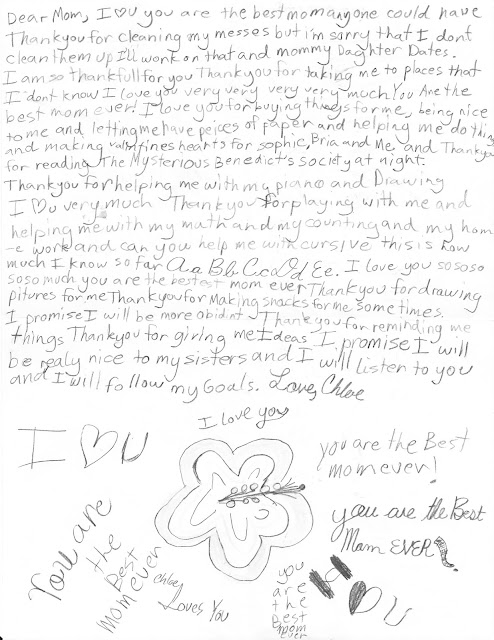 Dear Mom, I ♡ u you are the best mom anyone could have
Thankyou for cleaning my messes but i'm sarry that I dont
clean them up I'll work on that and mommy Daghter Dates.
I am so thankfull for you Thankyou for taking me to places that
I don't know I love you very very very very much! You Are the
best mom ever! I love you for buying things for me, being nice
to me and letting me have peices of paper and helping me do things
and making valintines hearts for sophie, Bria and Me, and Thankyou
for reading The Mysterious Benedict's society at night.
Thankyou for helping me with my piano and Drawing
I ♡ u very much Thankyou for playing with me and
helping me with my math and my counting and my hom
-e work and can you help me with cursive this is how
much I know so far Aa Bb Cc Dd Ee. I love you sososo
soso much you are the bestest mom ever Thankyou for drawing
pitures for me Thankyou for Making snacks for me some times.
I promise I will be more obidint Thankyou for reminding me
things Thankyou for giving me Ideas I promise I will
be realy nice to my sisters and I will listen to you
and I will follow my Goals. Love, Chloe
I love you
I ♡ U
you are the Best
mom ever!
you are the Best
Mom EVER!
You are
the
Best
mom ever
Chloe
Loves You
you
are
the
Best
mom
ever
I ♡ U